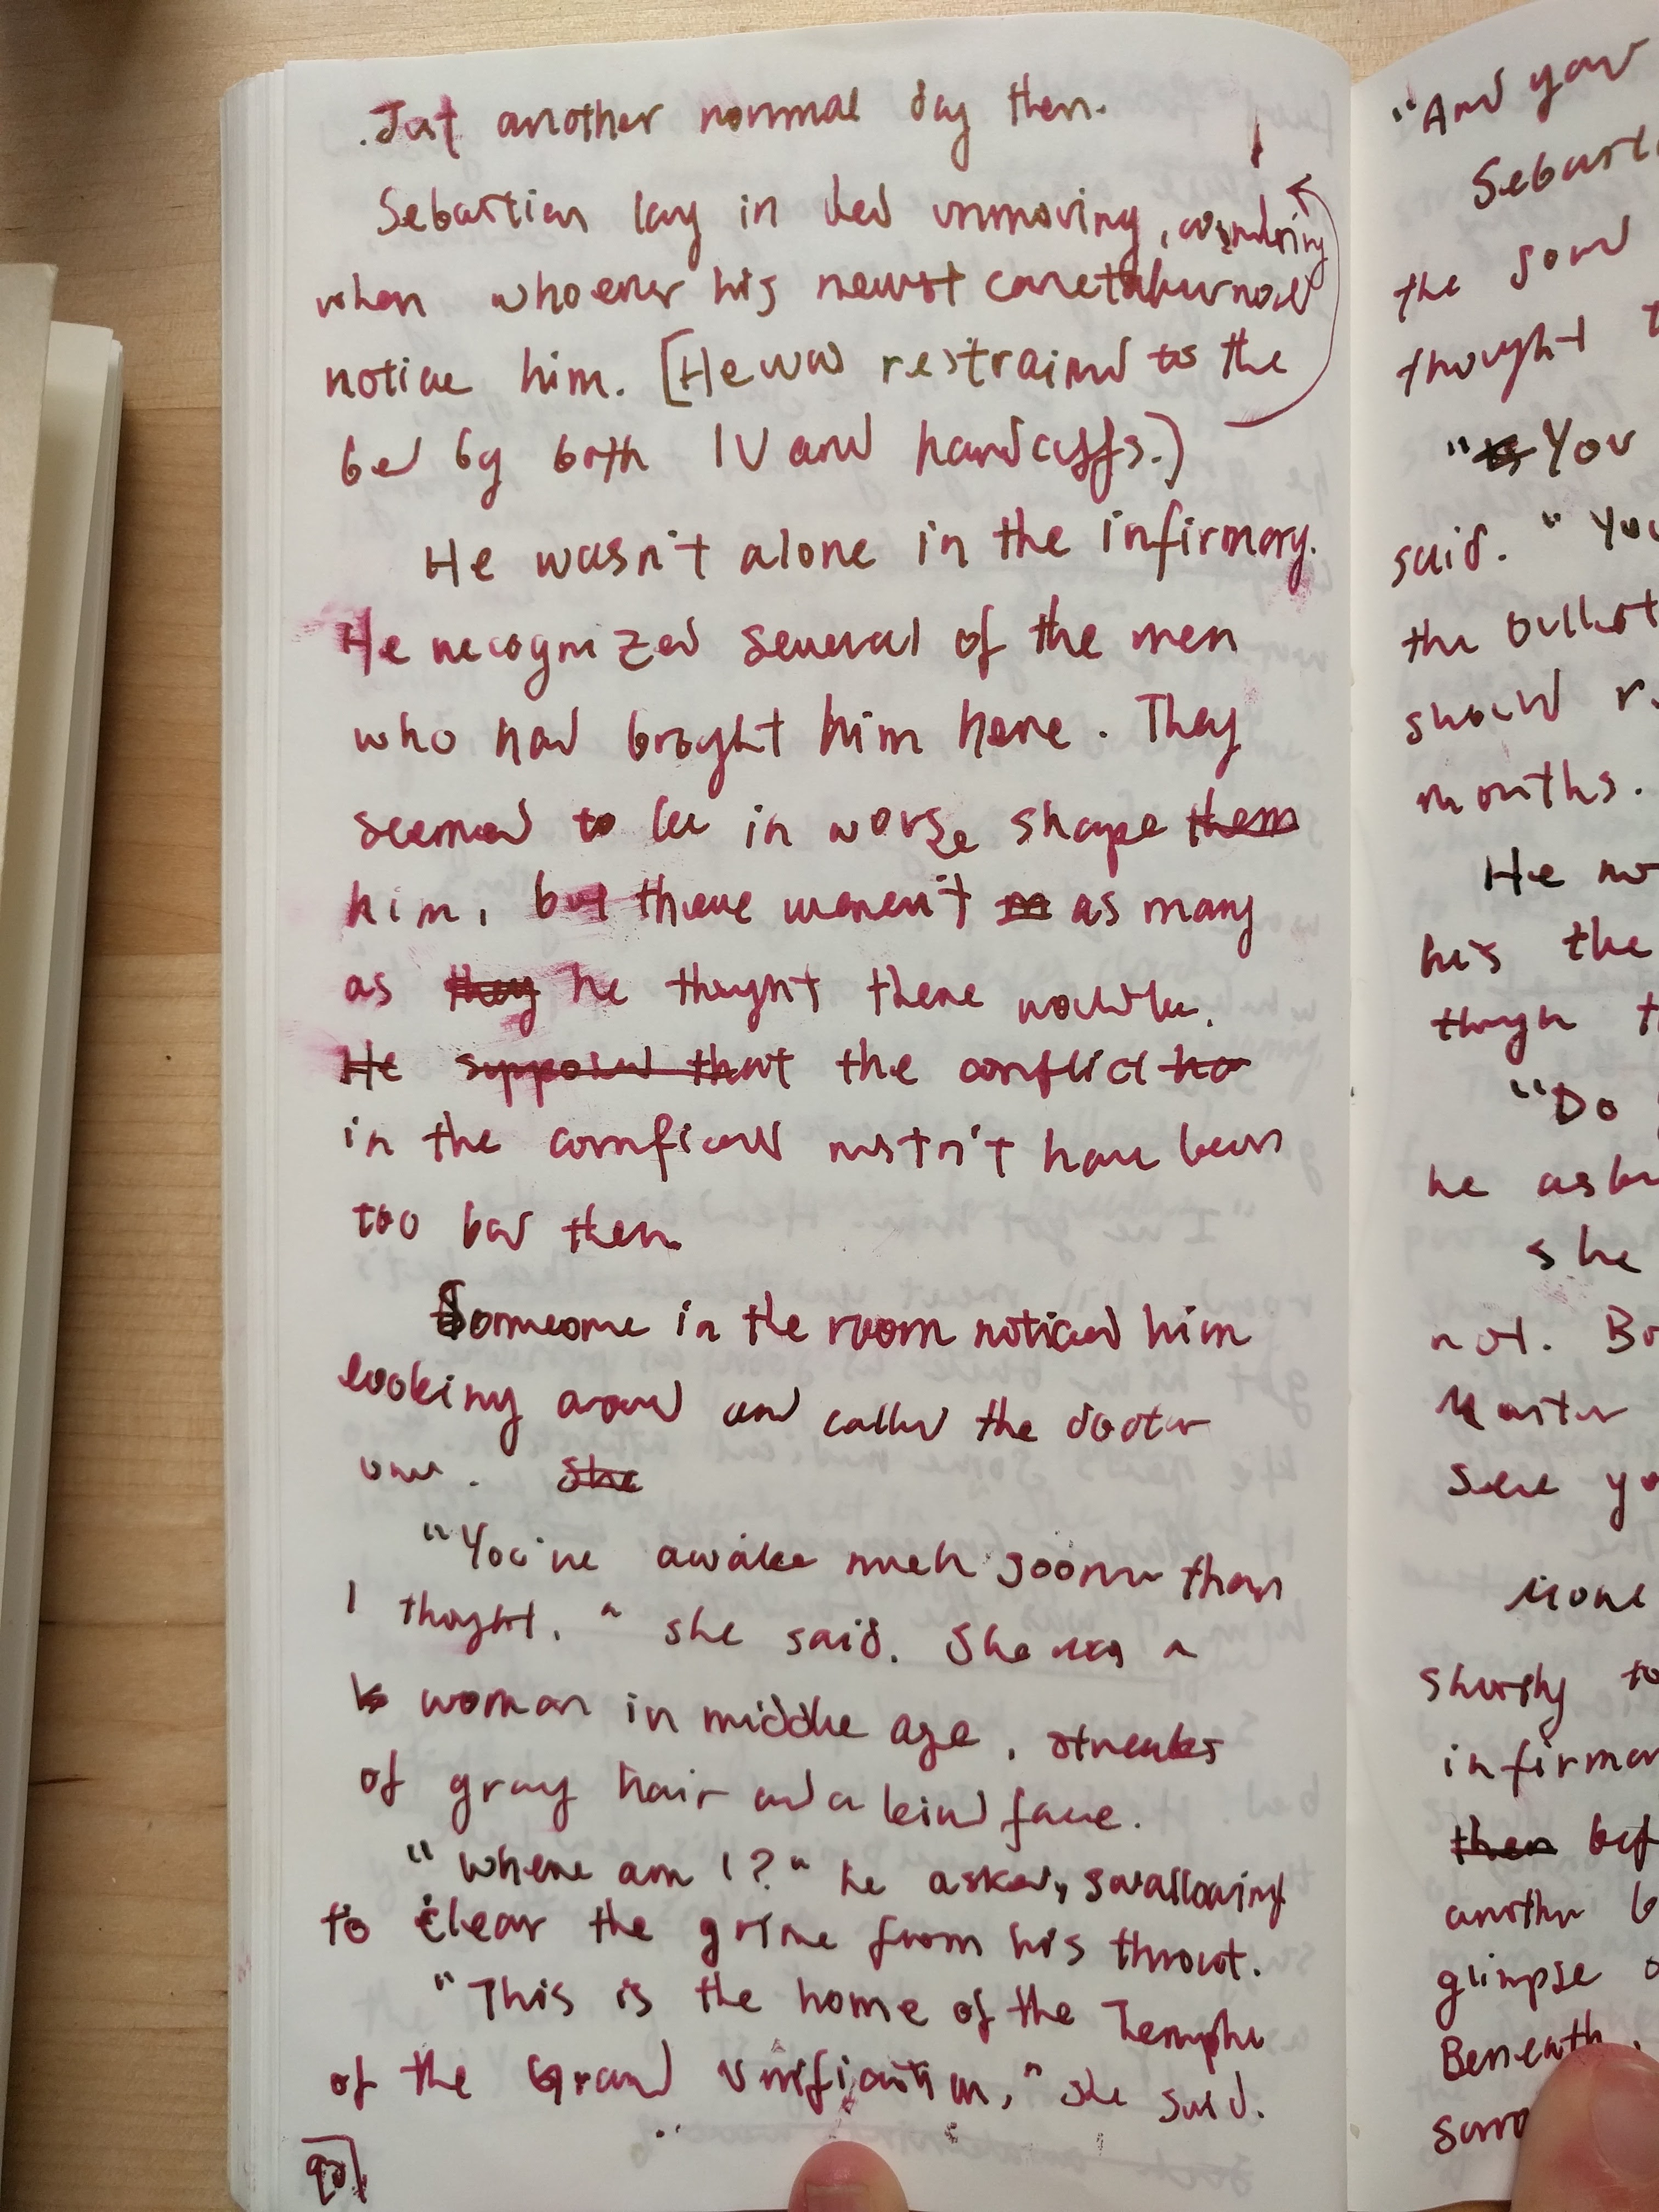 Just another normal day then.
Sebastian lay in bed unmoving, wondering
when whoever his newest caretaker would
notice him. [He was restrained to the
bed by both IV and handcuffs.)
He wasn't alone in the infirmary.
He recognized several of the men
who had brought him here. They
seemed to be in worse shape them
him, but there weren't m as many
as they he thought there would be.
He supposed that the conflict ha
in the cornfield mustn't have been
too bad then.
Someone in the room noticed him
looking around and called the doctor
over. She
"You're awake much sooner than
I thought," she said. She was a
woman in middle age, streaks
of gray hair and a kind face.
"Where am I?" he asked, swallowing
to clear the grime from his throat.
"This is the home of the Temple
of the Grand Unification," she said.
"And your
Sebasti
the
thought t
"You
said. "You
the bullet
should r
months.
He no
his the
though t
"Do
he aske
she
not. Bu
Master
see yo
More
shortly to
infirmar
then bef
another b
glimpse o
Beneath,